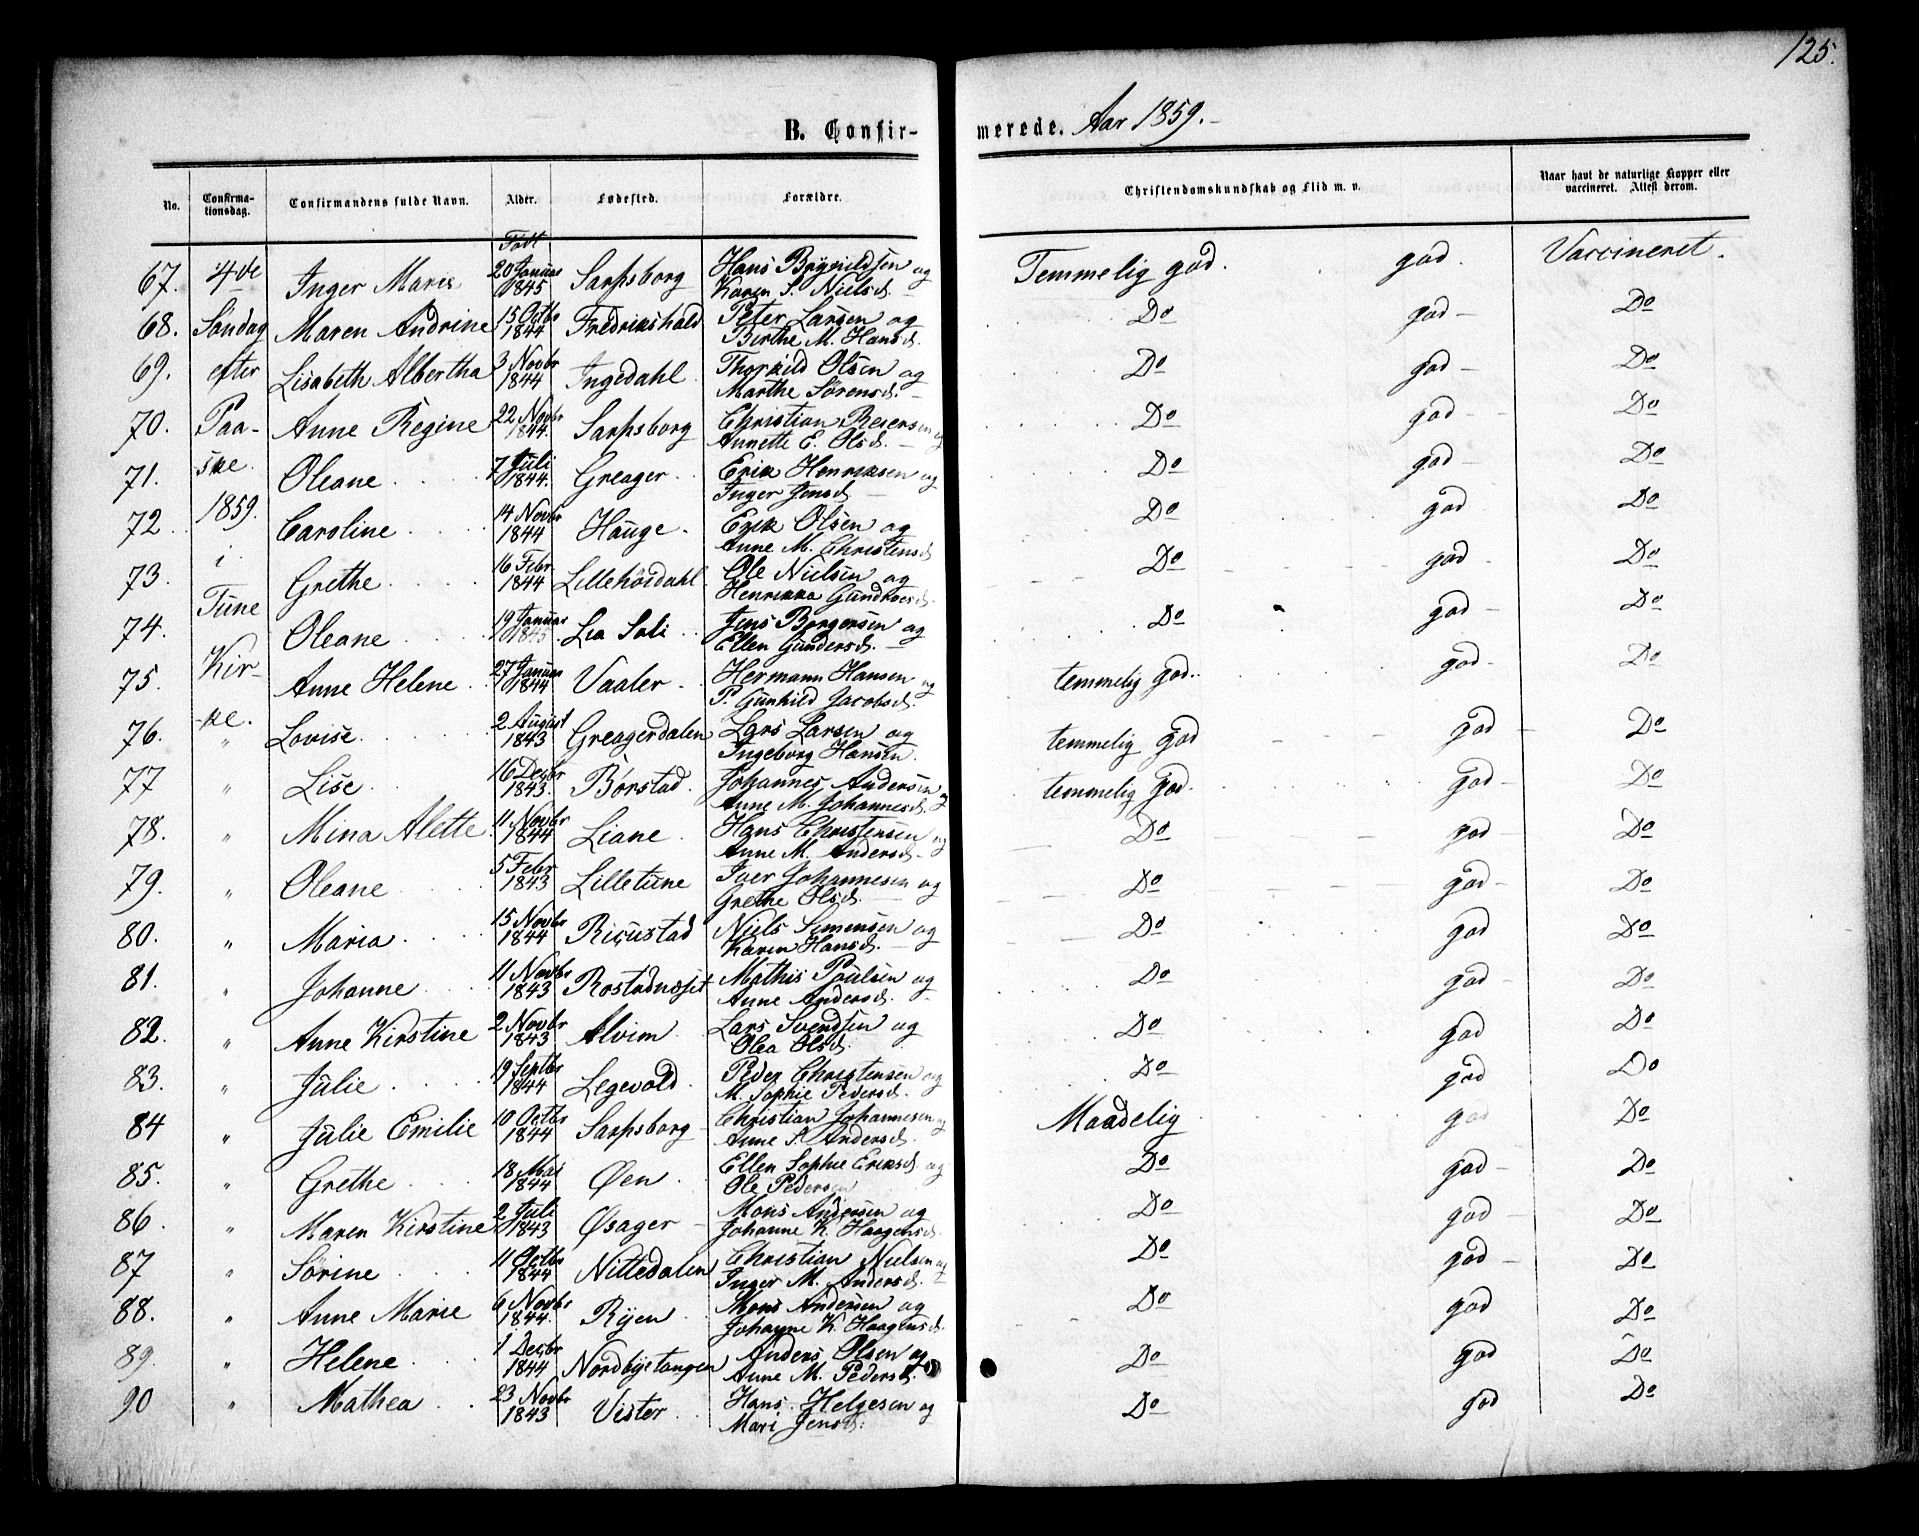 125.
B. Confirmerede. Aar 1859.
No. Confirmationsdag. Confirmandens fulde Navn. Alder. Fødested. Forældre. Christendomskundskab og Flid m. v. Naar havt de naturlige Kopper eller vaccineret. Attest derom.
Født
67. 4de Inger Marie 20 Januar 1845 Sarpsborg Hans Brynildsen og Karen S. Nielsd. Temmelig god. god. Vaccineret.
68. Søndag Maren Andrine 15 Octbr 1844 Fredrikshald Peter Larsen og Birthe M. Hansd. Do god Do
69. efter Lisabeth Albertha 3 Novbr 1844 Ingedahl Thorkild Olsen og Marthe Sørensd. Do god Do
70. Paa- Anne Regine 22 Novbr 1844. Sarpsborg Christian Reiersen og Annette E. Olsd. Do god Do
71. ske. Oleane 7 Juli 1844. Greager Erik Henriksen og Inger Jensd. Do god Do
72. 1859. Caroline 14 Novbr 1844 Hauge Erik Olsen og Anne M. Christensd. Do god Do
73. i Grethe 16 Febr 1844 Lillehöidahl Ole Nielsen og Henrikka Do god Do
74. Tune Oleane 19 Januar 1845 Lia Soli Jens Borgersen og Ellen Gundersd. Do god Do
75. Kir- Anne Helene 27 Januar 1844 Vaaler Hermann Hansen og P. Gunhild Jacobsd. temmelig god. god Do
76. ke. " Lovise 2 August 1843 Greagerdalen Lars Larsen og Ingeborg Hansen. temmelig god god Do
77 " Lise 16 Decbr 1843. Børstad Johannes Andersen og Anne M. Johannesd. temmelig god god Do
78. " Mina Alette 11 Novbr 1844 Liane Hans Christensen og Anne M. Andersd. Do god Do
79. " Oleane 5 Febr 1843 Lilletune Iver Johannesen og Grethe Olsd. Do god Do
80. " Maria 15 Novbr 1844 Niels Simensen og Karen Hansd. Do god Do
81. " Johanne 11 Novbr 1843 Rostadnæset Mathis Poulsen og Anne Andersd. Do god Do
82. " Anne Kirstine 2 Novbr 1843 Alvim Lars Svendsen og Olea Olsd. Do god Do
83. " Julie 19 Septbr 1844 Legevold Peder Christensen og M. Sophie Pedersd. Do god Do
84 " Julie Emilie 10 Octbr 1844 Sarpsborg Christian Johannesen og Anne S. Andersd. Maadelig god Do
85. " Grethe 18 Mai 1844 Øen Ellen Sophie Eriksd og Ole Pedersen Do god Do
86. " Maren Kirstine 2 Juli 1843 Øsager Mons Andersen og Johanne K. Haagensd. Do god Do
87 " Sørine 11 Octbr 1844 Nittedalen Christian Nielsen og Inger M. Andersd. Do god Do
88. " Anne Marie 6 Novbr 1844. Ryen Mons Andersen og Johanne K. Haagensd. Do god Do
89. " Helene 1 Decbr 1844 Nordbyetangen Anders Olsen og Anne M. Pedersd. Do god Do
90 " Mathea 23 Novbr 1843 Vister Hans Helgesen og Mari Jensd. Do god Do